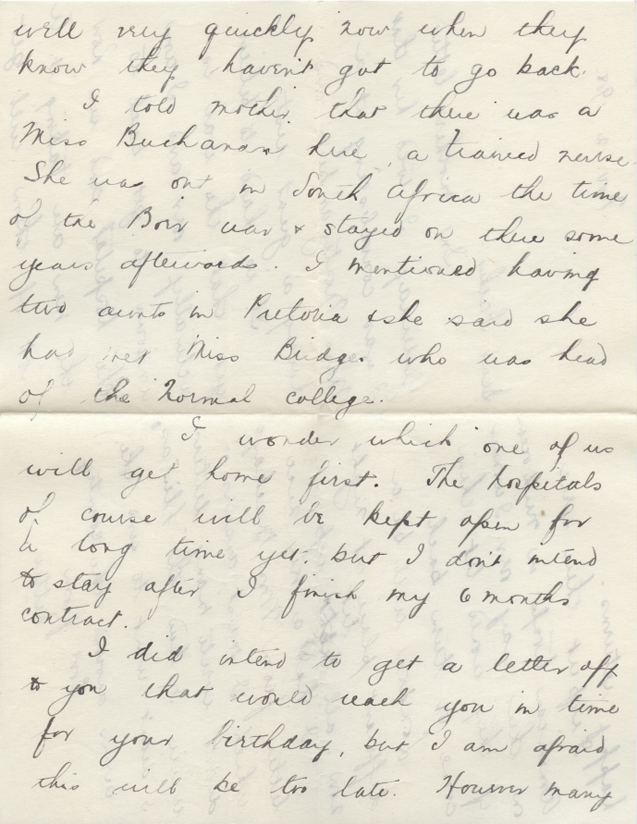 well very quickly now when they
know they haven't got to go back.
I told mother that there was a
Miss Buchanan here, a trained nurse.
She was out in South Africa the time
of the Boer war & stayed on there some
years afterwards. I mentioned having
two aunts in Pretoria & she said she
had met Miss Bridge who was head
of the Normal college.
I wonder which one of us
will get home first. The hospitals
of course will be kept open for
a long time yet, but I don't intend
to stay after I finish my 6 months
contract.
I did intend to get a letter off
to you that would reach you in time
for your birthday, but I am afraid
this will be too late. However many